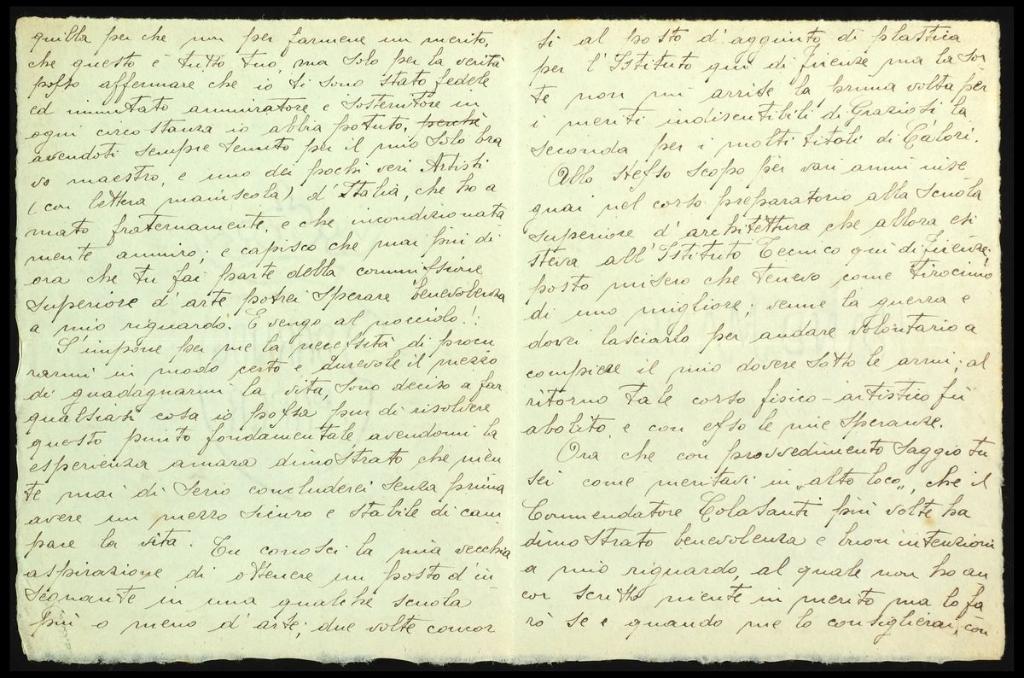 quilla per che non per farmene un merito,
che questo è tutto tuo, ma solo per la verità
posso affermare che io ti sono stato fedele
ed immutato ammiratore e sostenitore in
ogni circostanza io abbia potuto, perchè
avendoti sempre tenuto per il mio solo bra
vo maestro, e uno dei pochi veri Artisti
(con lettera maiuscola) d'Italia, che ho a
mato fraternamente, e che incondizionata
mente ammiro; e capisco che mai più di
ora che tu fai parte della commissione
superiore d'arte potrei sperare benevolenza
a mio riguardo. E vengo al nocciolo!:
S'impone per me la necessità di procu
rarmi in modo certo e durevole il mezzo
di guadagnarmi la vita, sono deciso a far
qualsiasi cosa io possa pur di risolvere
questo punto fondamentale, avendomi la
esperienza amara dimostrato che nien
te mai di serio concluderei senza prima
avere un mezzo sicuro e stabile di cam
pare la vita. Tu conosci la mia vecchia
aspirazione di ottenere un posto d'in
segnante in una qualche scuola
più o meno d'arte, due volte concor
si al posto d'aggiunto di plastica
per l'Istituto qui di Firenze ma la sor
te non mi arrise la prima volta per
i meriti indiscutibili di Graziosi la
seconda per i molti titoli di Calori.
Allo stesso scopo per vari anni inse
gnai nel corso preparatorio alla Scuola
superiore d'architettura che allora esi
steva all'Istituto Tecnico qui di Firenze:
posto misero che tenevo come tirocinio
di uno migliore; venne la guerra e
dovei lasciarlo per andare volontario a
compiere il mio dovere sotto le armi; al
ritorno tale corso fisico-artistico fu
abolito, e con esso le mie speranze.
Ora che con provvedimento saggio tu
sei come meritavi in „alto loco„ che il
Commendatore Colasanti più volte ha
dimostrato benevolenza e buon intenzioni
a mio riguardo, al quale non ho an
cor scritto niente in merito ma lo fa
rò se e quando me lo consiglierai, con